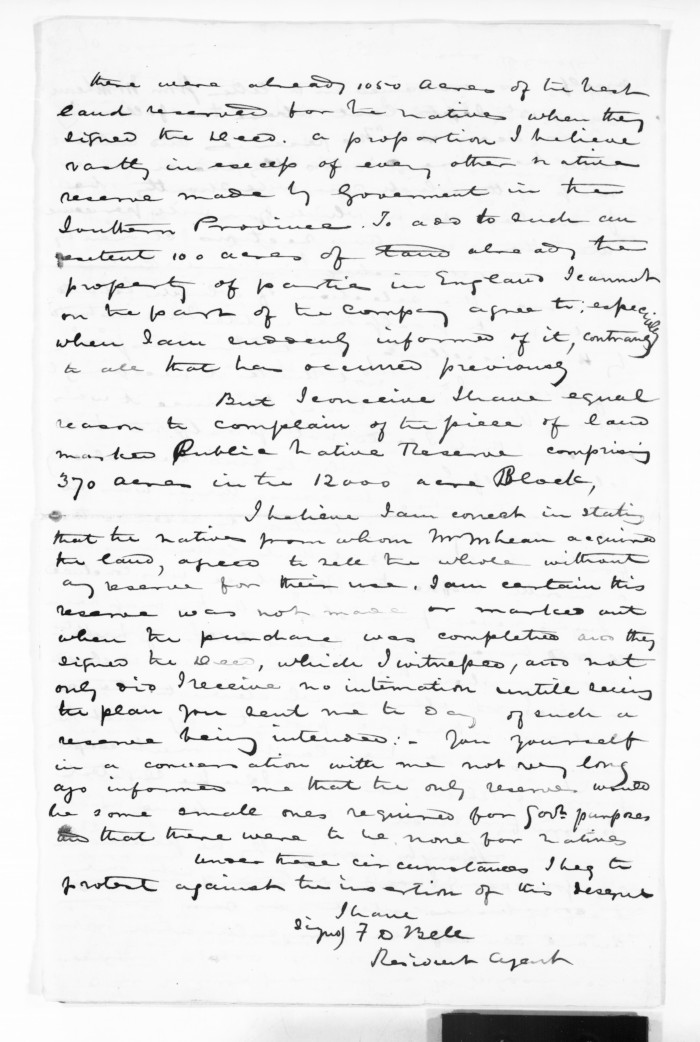 there were already 1050 Acres of the best
land reserved for the natives when they
signed the Deed. a proportion I believe
vastly in excess of every other native
reserve made by Goverment in the
Southern Province. To add to such an
extent 100 acres of land already the
property of parties in England I cannot
on the part of the Company agree to; especially
when I am suddenly informed of it, contrary
to all that has occurred previously
But I conceive I have equal
reason to complain of the piece of land
marked Public Native Reserve comprising
370 acres in the 12000 acre Block,
I believe I am correct in stating
that the natives from whom Mr McLean acquired
the land, agreed to sell the whole without
any reserve for their use. I am certain this
reserve was not made or marked out
when the purchase was completed and they
signed the Deed, which I witnessed, and not
only did I receive no intimation untill seeing
the plan you sent me to Day of such a
reserve being intended:- You yourself
in a conversation with me not very long
ago informed me that the only reserves would
be some small ones required for Govt purposes
that there were to be none for natives
Under these circumstances I beg to
protest against the insertion of this
I have
Signed F D Bell
Resident Agent